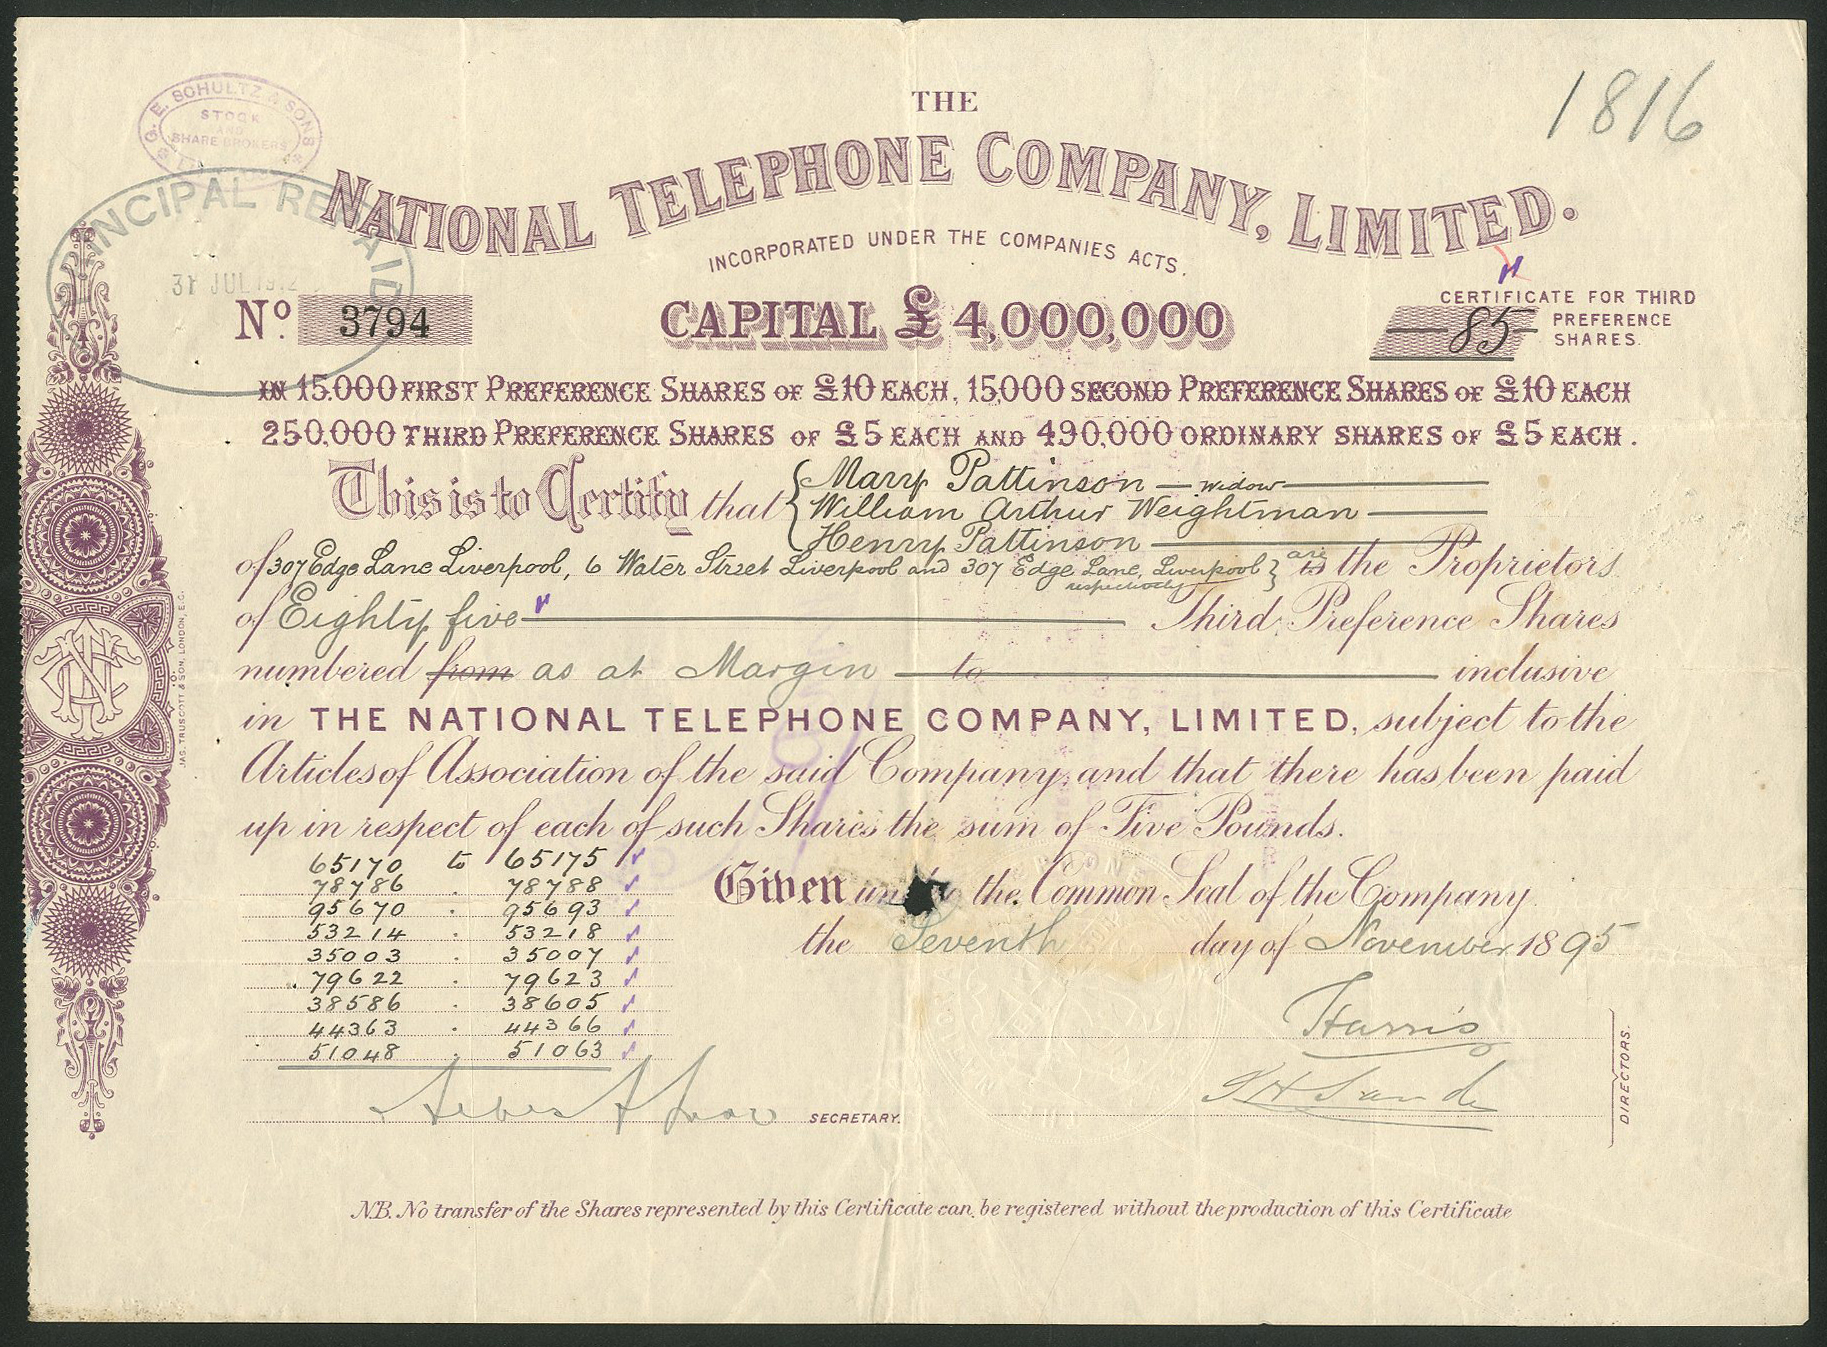 1816
G. E. SCHULTZ & SONS
STOCK
AND
SHARE BROKERS
PRINCIPAL REPAID
31 JUL 1912
THE
NATIONAL TELEPHONE COMPANY, LIMITED.
INCORPORATED UNDER THE COMPANIES ACTS.
No. 3794
CAPITAL £4,000,000
CERTIFICATE FOR THIRD
85 PREFERENCE
SHARES.
IN 15.000 FIRST PREFERENCE SHARES OF £10 EACH, 15,000 SECOND PREFERENCE SHARES OF £10 EACH
250,000 THIRD PREFERENCE SHARES OF £5 EACH AND 490,000 ORDINARY SHARES OF £5 EACH.
This is to Certify that Mary Pattinson — widow
William Arthur Weightman
Henry Pattinson
of 307 Edge Lane Liverpool, 6 Water Street Liverpool and 307 Edge Lane, Liverpool respectively are is the Proprietors
of Eighty five Third Preference Shares
numbered from as at Margin to inclusive
in THE NATIONAL TELEPHONE COMPANY, LIMITED, subject to the
Articles of Association of the said Company, and that there has been paid
up in respect of each of such Shares the sum of Five Pounds.
65170 to 65175
78786 . 78788
95670 . 95693
53214 . 53218
35003 . 35007
79622 . 79623
38586 . 38605
44363 . 44366
51048 . 51063
Given the Common Seal of the Company
the Seventh day of November 1895
Harris
SECRETARY.
DIRECTORS.
N.B. No transfer of the Shares represented by this Certificate can be registered without the production of this Certificate
JAS. TRUSCOTT & SON, LONDON, E.C.